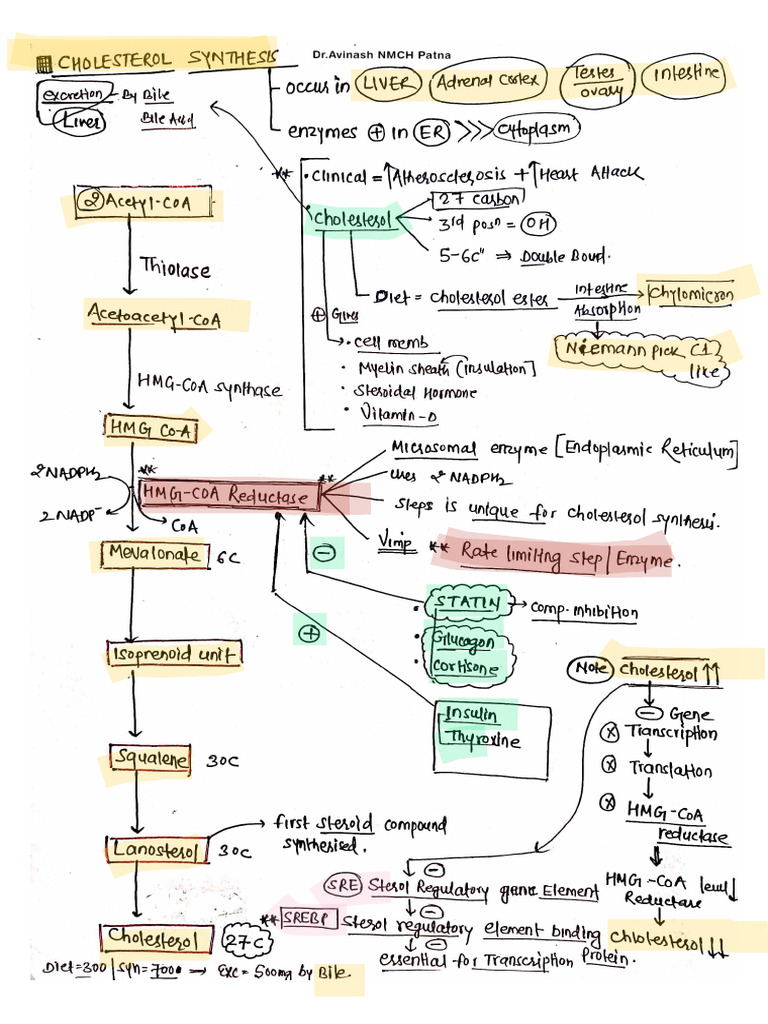 CHOLESTEROL SYNTHESIS
Dr.Avinash NMCH Patna
occurs in LIVER Adrenal Cortex Testes ovary Intestine
excretion By Bile
Liver Bile Acid
enzymes + in ER >>> Cytoplasm
** Clinical = ↑Atherosclerosis + ↑Heart Attack
Cholesterol
27 Carbon
3rd posn = OH
5-6c" ⇒ Double Bound.
Diet = cholesterol ester Intestine Absorption → Chylomicron
Niemann pick C1 like
+ Gives
• cell memb
• Myelin sheath (insulation]
• Steroidal Hormone
• Vitamin-D
2 Acetyl-COA
Thiolase
Acetoacetyl-COA
HMG-COA synthase
HMG CO-A
2NADPH2
2NADP-
COA
** HMG-COA Reductase **
Microsomal enzyme [Endoplasmic Reticulum]
uses 2 NADPH2
steps is unique for cholesterol synthesi.
Vimp ** Rate limiting step / Enzyme.
Mevalonate 6C
−
+
• STATIN → comp. inhibition
• Glucagon
• cortisone
Insulin
Thyroxine
Isoprenoid unit
Squalene 30C
Lanosterol 30C
→ first steroid compound
synthesised.
Cholesterol 27C
Diet=300 | Syn=700 → Exc = 500mg by Bile.
Note Cholesterol ↑↑
− Gene
x Transcription
x Translation
x HMG-COA
reductase
HMG-COA level↓
Reductase
Cholesterol ↓↓
−
SRE Sterol Regulatory gene Element
−
** SREBP Sterol regulatory element binding Protein.
−
essential for Transcription